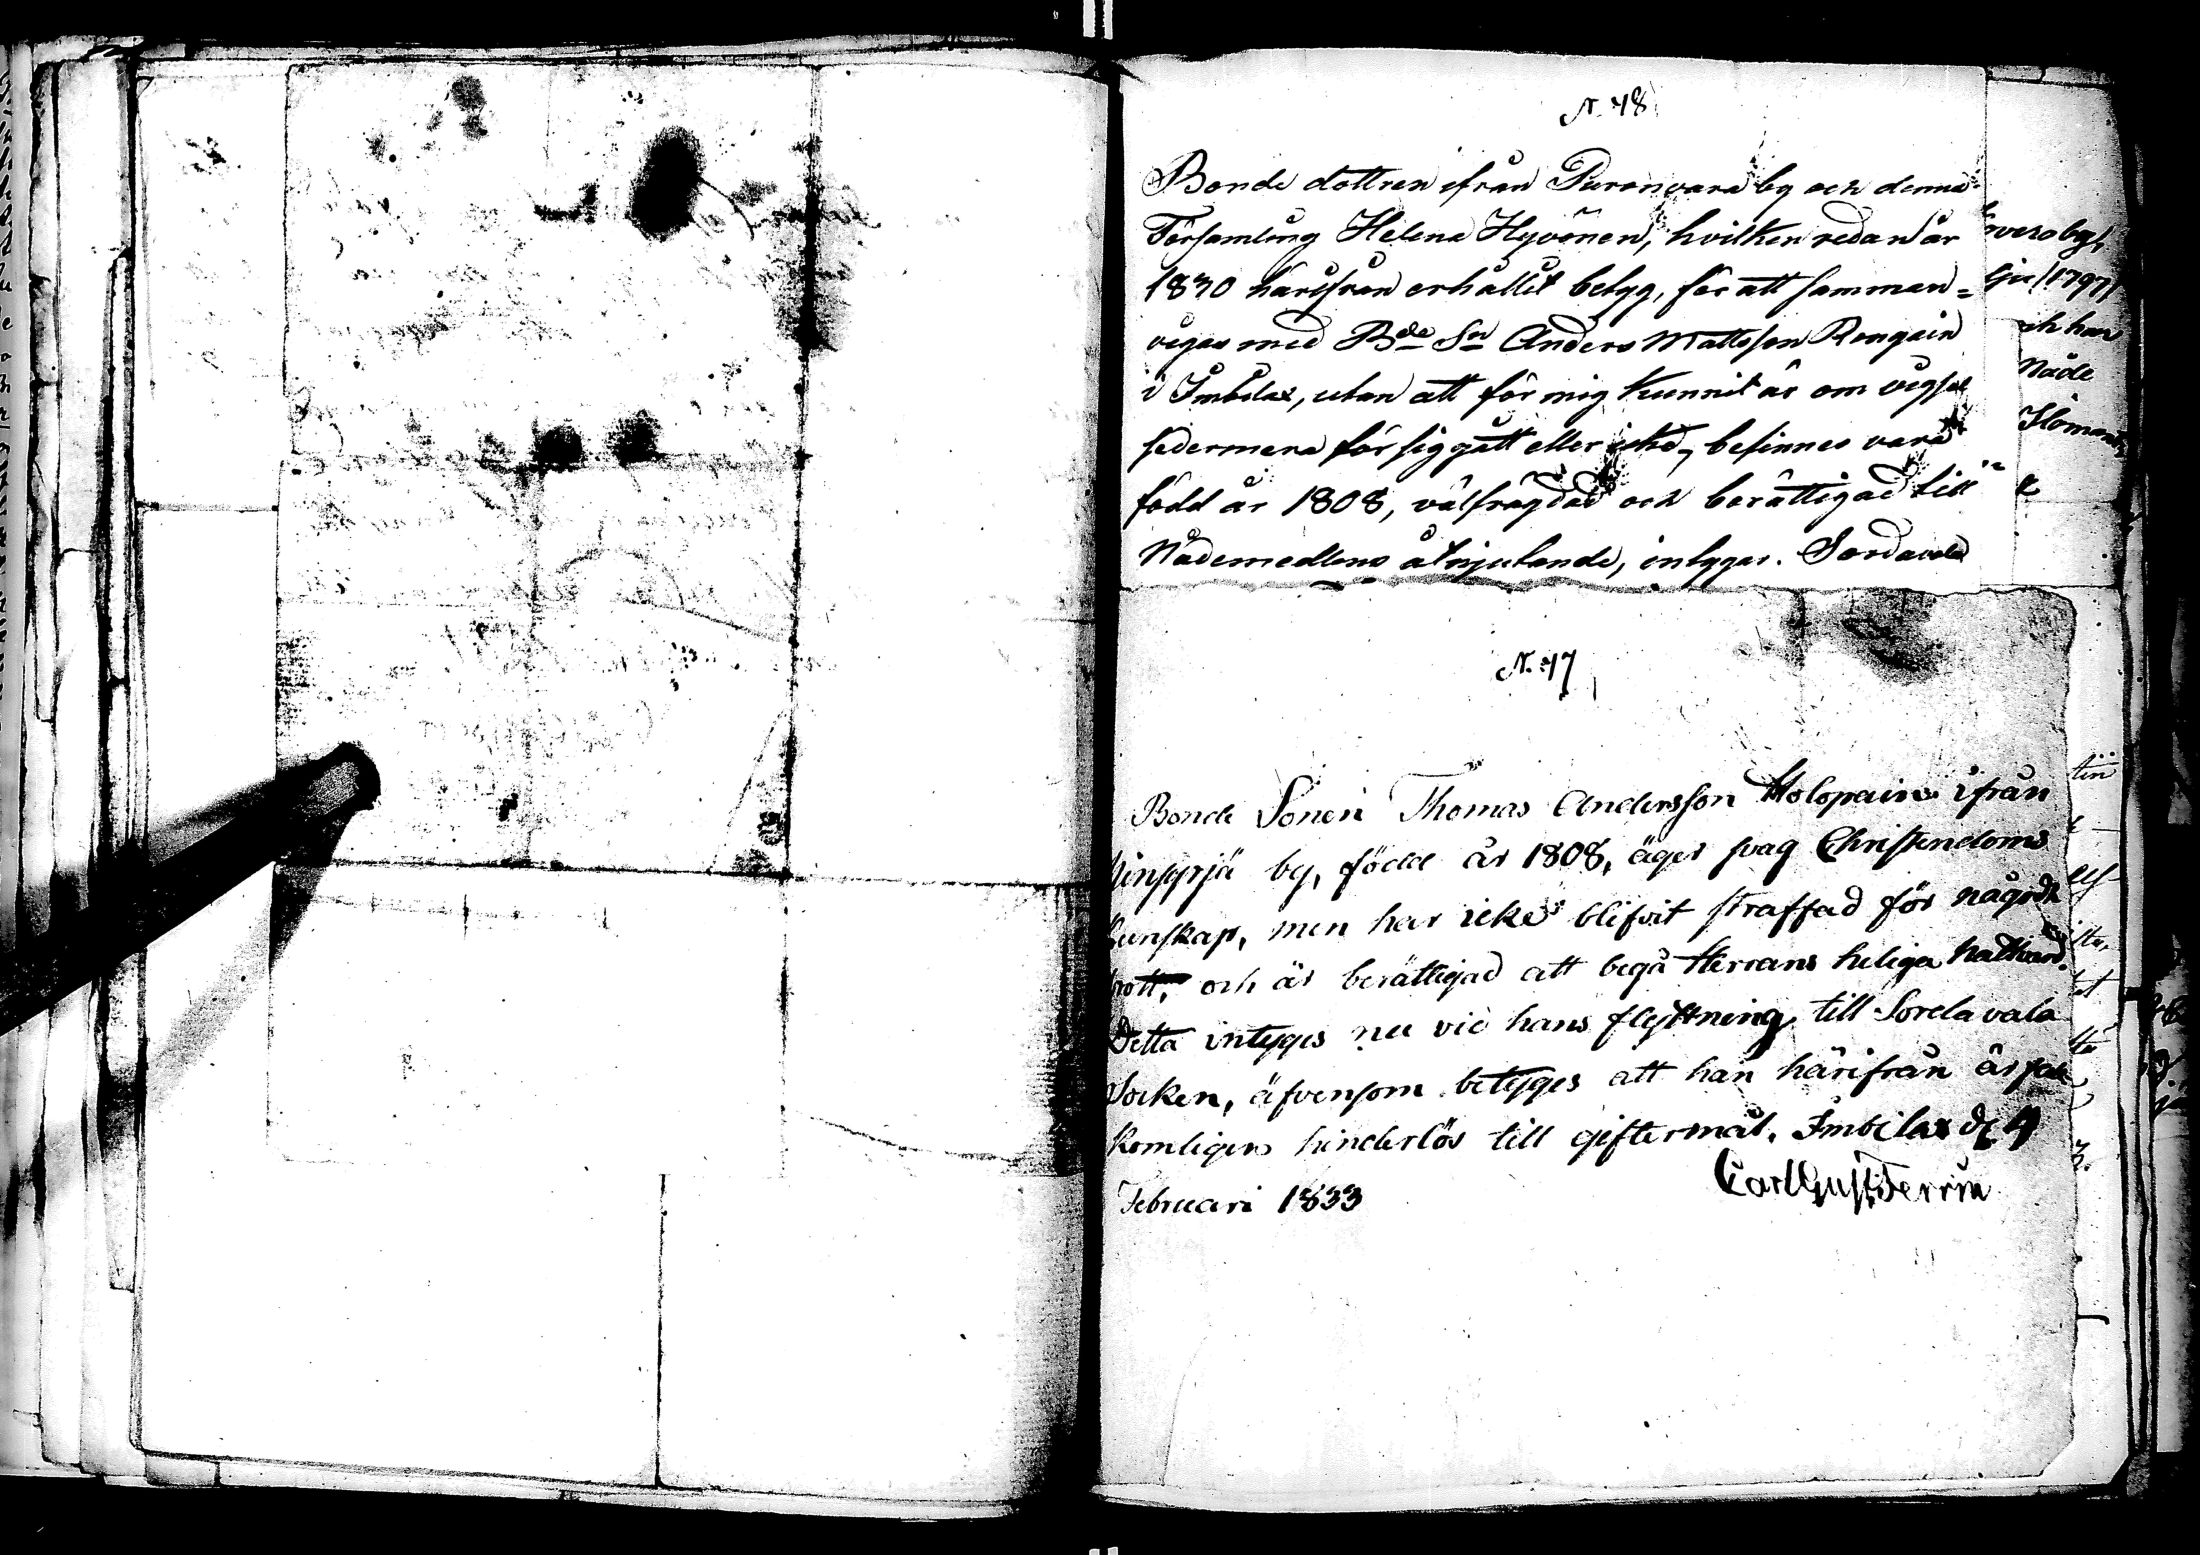 N. 48
Bonde dottren ifrån Puronvara by och denna
Församling Helena Hyvönen, hvilken redan år
1830 härifrån erhållit betyg, för att samman=
vigas med Bde Sn Anders Mattsson Rongain
i Imbilax, utan att för mig kunnit är om vigsel
sedermera för sig gått eller icke, befinnes vara
född år 1808, välfrägdad och berättigad till
Nådemedlens åtnjutande, intygar. Sordavala
N. 47
Bonde Sonen Thomas Andersson Holopain ifrån
by, född år 1808, äger svag Christendoms
kunskap, men har icke blifvit straffad för något
brott, och är berättigad att begå Herrans heliga Nattvard.
Detta intyges nu vid hans flyttning till Sordavala
Socken, äfvensom betyges att han härifrån är
komligen hinderlös till giftermål. Imbilax d. 4
Februari 1833
Carl Gust Ferrin
1797
och har
Nåde
Ilomants